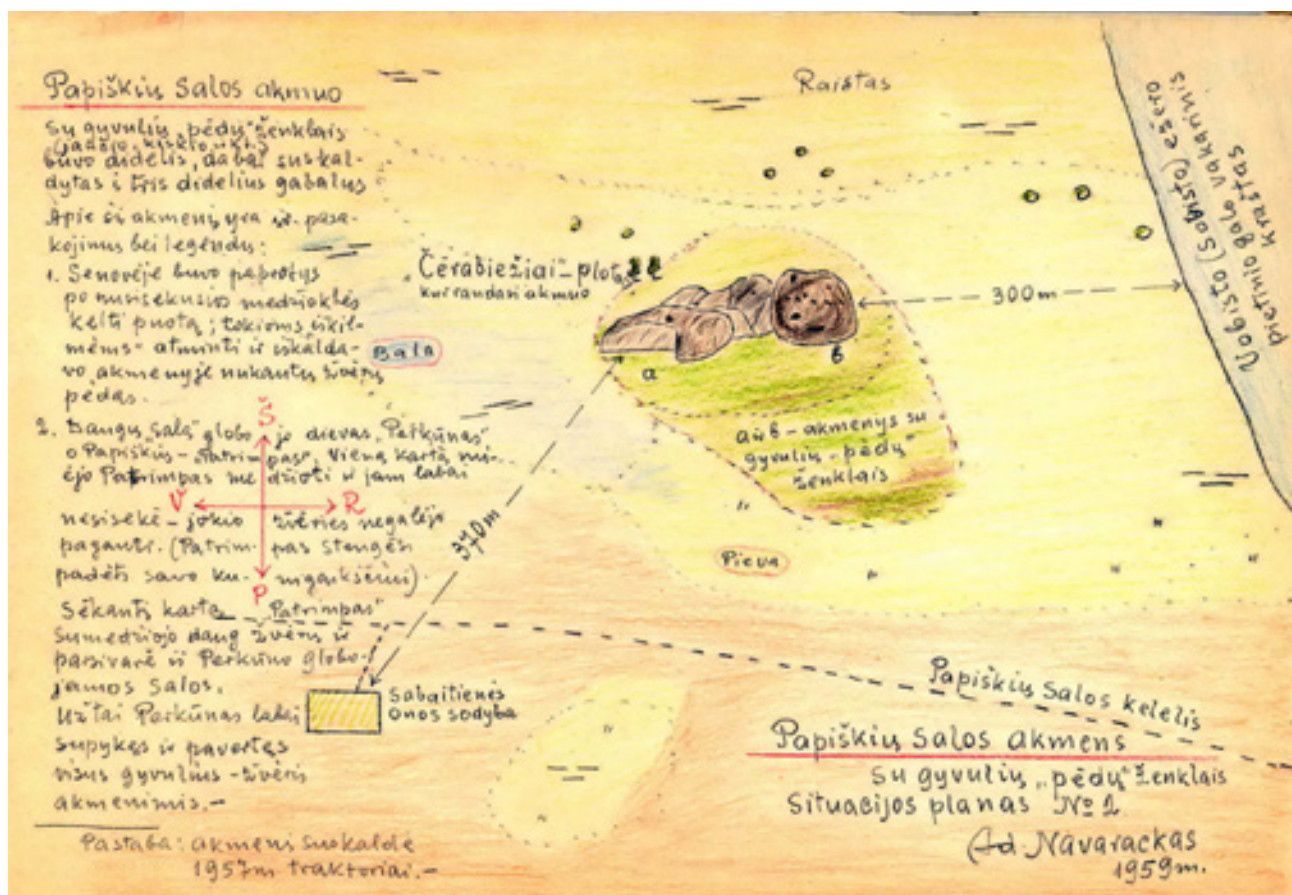 Papiškių Salos akmuo
Su gyvulių „pėdų" ženklais
buvo didelis, dabar suskal-
dytas į tris didelius gabalus
Apie šį akmenį yra pasa-
kojimų bei legendų:
1. Senovėje buvo paprotys
po nusisekusios medžioklės
kelti puotą; tokioms iškil-
mėms atminti ir iškalda-
vo akmenyje nukautų žvėrių
pėdas.
2. Daugų „salą" globojo dievas „Perkūnas"
o Papiškių - „Patrimpas". Vieną kartą
Patrimpas medžioti ir jam labai
nesisekė - jokio žvėries negalėjo
pagauti. (Patrimpas stengėsi
padėti savo kunigaikščiui).
Sekantį kartą „Patrimpas"
sumedžiojo daug žvėrių ir
parsivarė iš Perkūno globo-
jamos Salos.
Užtai Perkūnas labai
supykęs ir pavertęs
visus gyvulius - žvėris
akmenimis.-
Pastaba: akmenį suskaldė
1957m traktoriai.-
Š
V
R
P
Raistas
„Čerabiežiai" - plotas
kur randasi akmuo
Bala
a
b
a ir b - akmenys su
gyvulių - „pėdų"
ženklais
300 m
370 m
ežero
pietinio galo vakarinis
kraštas
Pieva
Sabaitienės
Onos sodyba
Papiškių Salos kelelis
Papiškių Salos akmens
Su gyvulių „pėdų" ženklais
Situacijos planas № 1
Ad. Navarackas
1959m.